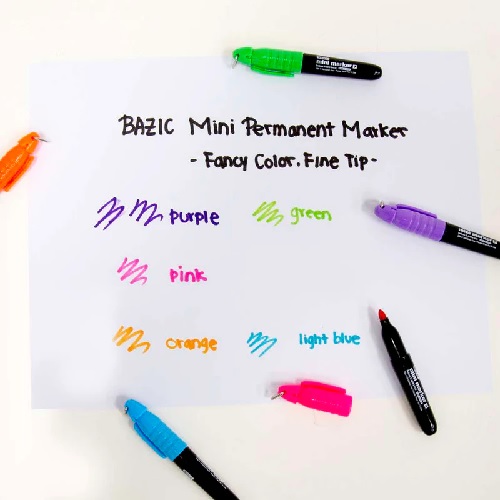 mini marker
BAZIC Mini Permanent Marker
- Fancy Color. Fine Tip -
purple green
pink
orange light blue